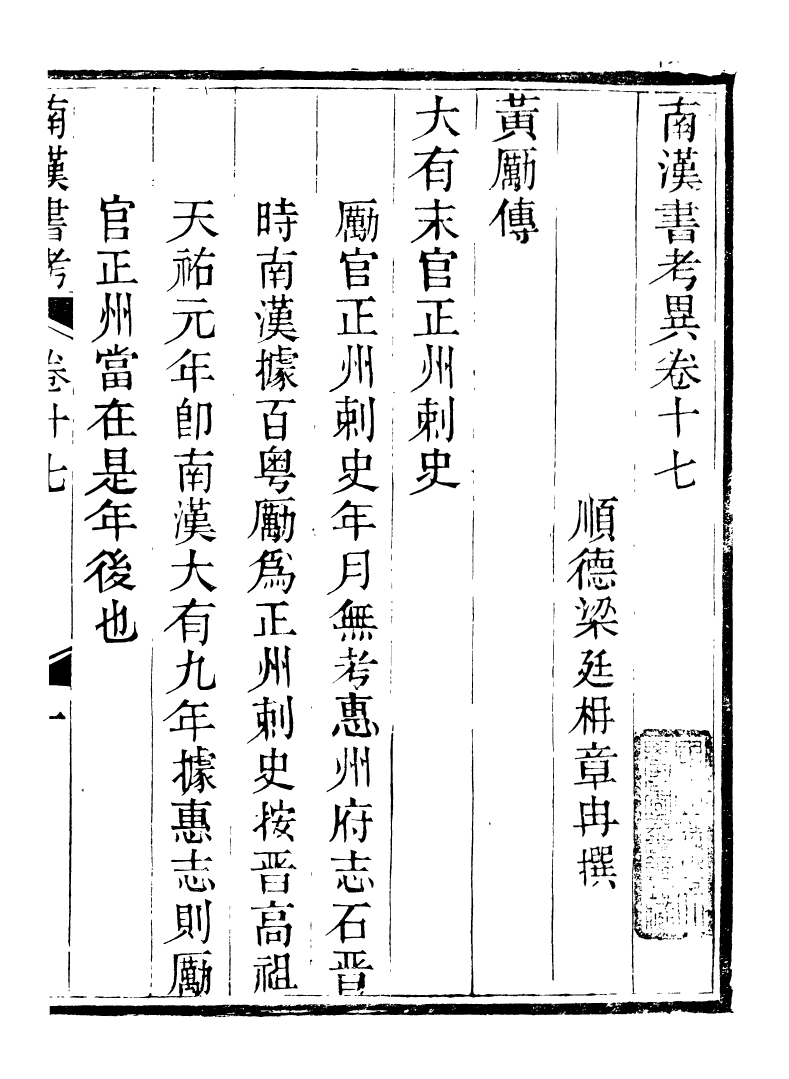 南漢書考異卷十七
順德梁廷枏章冉撰
黃勵傳
大有末官正州刺史
勵官正州刺史年月無考惠州府志石晋
時南漢據百粤勵爲正州刺史按晋高祖
天祐元年卽南漢大有九年據惠志則勵
官正州當在是年後也
南漢書考
卷十七
一